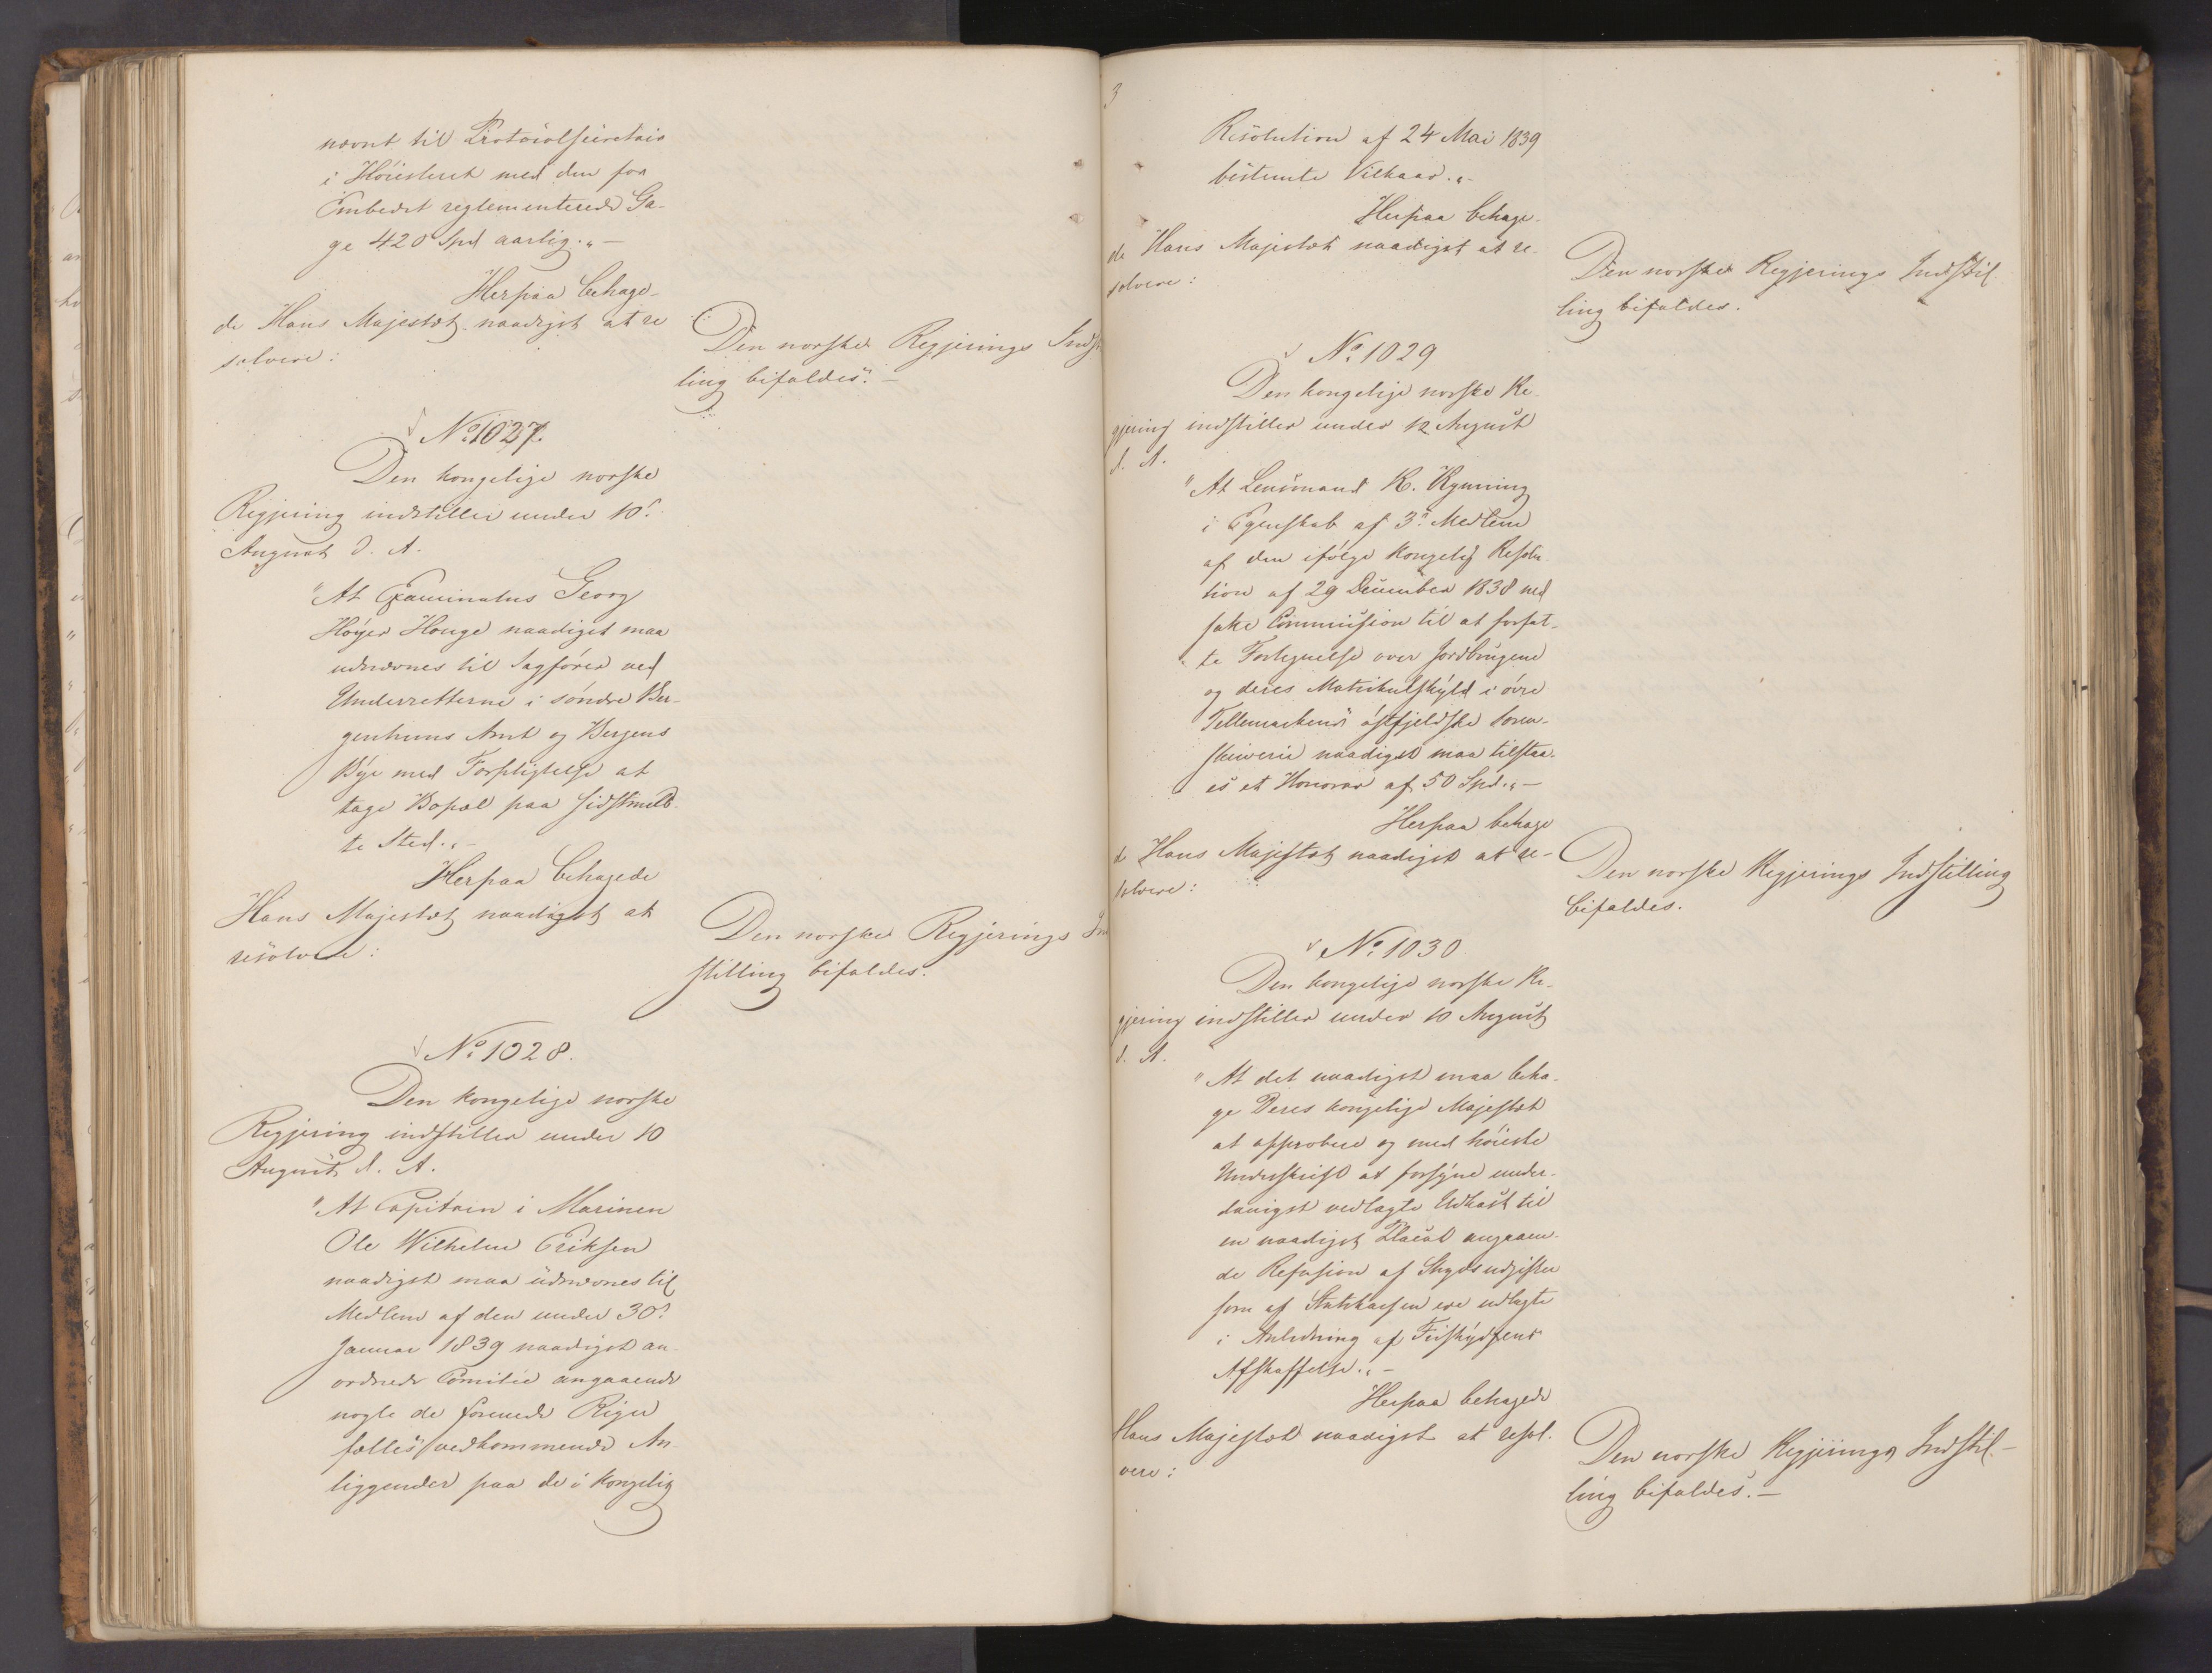 nævnt til Protocolsecretair
i Höiesteret med den for
Embedet reglementerede Ga-
ge 420 Spd aarlig."-
Herpaa behage-
de Hans Majestæt naadigst at re
solvere:
Den norske Regjerings Indst
ling bifaldes.-
No 1027.
Den kongelige norske
Regjering indstiller under 10de
August d. A.
"At Examinatus Georg
Höyer Houge naadigst maa
udnævnes til Sagförer ved
Underretterne i söndre Ber-
genhuus Amt og Bergens
Bye med Forpligtelse at
tage Bopæl paa sidstmeld-
te Sted."-
Herpaa behagede
Hans Majestæt naadigst at
resolvere:
Den norske Regjerings In
stilling bifaldes.
No 1028.
Den kongelige norske
Regjering indstiller under 10
August d. A.
"At Capitain i Marinen
Ole Wilhelm Eriksen
naadigst maa udnævnes til
Medlem af den under 30te
Januar 1839 naadigst an-
ordnede Comitée angaaende
nogle de forenede Riger
fælles vedkommende An-
liggender paa de i kongelig
3
Resolution af 24 Mai 1839
bestemte Vilkaar."-
Herpaa behage-
de Hans Majestæt naadigst at re-
solvere:
Den norske Regjerings Indstil-
ling bifaldes.
No 1029
Den kongelige norske Re-
gjering indstiller under 12 August
d. A.
"At Lensmand K. Kynning
i Egenskab af 3die Medlem
af den ifölge kongelig Resolu-
tion af 29 December 1838 ned
satte Commission til at forfat-
te Fortegnelse over Jordbrugene
og deres Matrikulskyld i övre
Tellemarkens östfjeldske Soren-
skriverie naadigst maa tilstaa-
es et Honorar af 50 Spd."-
Herpaa behage
de Hans Majestæt naadigst at re-
solvere:
Den norske Regjerings Indstilling
bifaldes.
No 1030
Den kongelige norske Re-
gjering indstiller under 10 August
d. A.
"At det naadigst maa beha-
ge Deres kongelige Majestæt
at approbere og med höieste
Underskrift at forsyne under-
danigst vedlagte Udkast til
en naadigst Placat angaaen-
de Refusion af Skydsudgifter
som af Statskassen ere udlagte
i Anledning af Friskydsens
Afskaffelse."-
Herpaa behagede
Hans Majestæt naadigst at resol-
vere:
Den norske Regjerings Indstil-
ling bifaldes.-